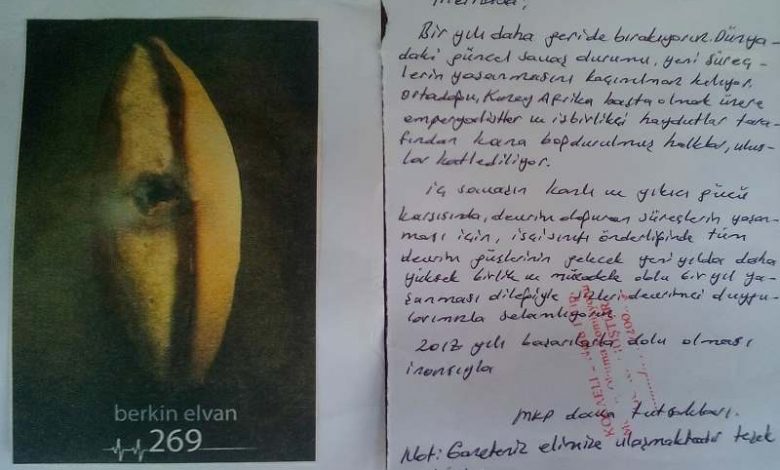 berkin elvan
269
Merhaba,
Bir yılı daha geride bırakıyoruz. Dünya-
daki güncel savaş durumu, yeni süreç-
lerin yaşanmasını kaçınılmaz kılıyor.
Ortadoğu, Kuzey Afrika başta olmak üzere
emperyalistler ve işbirlikçi haydutlar tara-
fından kana boğdurulmuş halklar, ulus-
lar katlediliyor.
İç savaşın kanlı ve yıkıcı gücü
karşısında, devrim doğuran süreçlerin yaşan-
ması için, işçi sınıfı önderliğinde tüm
devrim güçlerinin gelecek yeni yılda daha
yüksek birlik ve mücadele dolu bir yıl ya-
şanması dileğiyle sizleri devrimci duygu-
larımızla selamlıyoruz.
yılı başarılarla dolu olması
inancıyla
MKP dava tutsakları.
Not: Gazeteniz elimize ulaşmaktadır
KOCAELİ